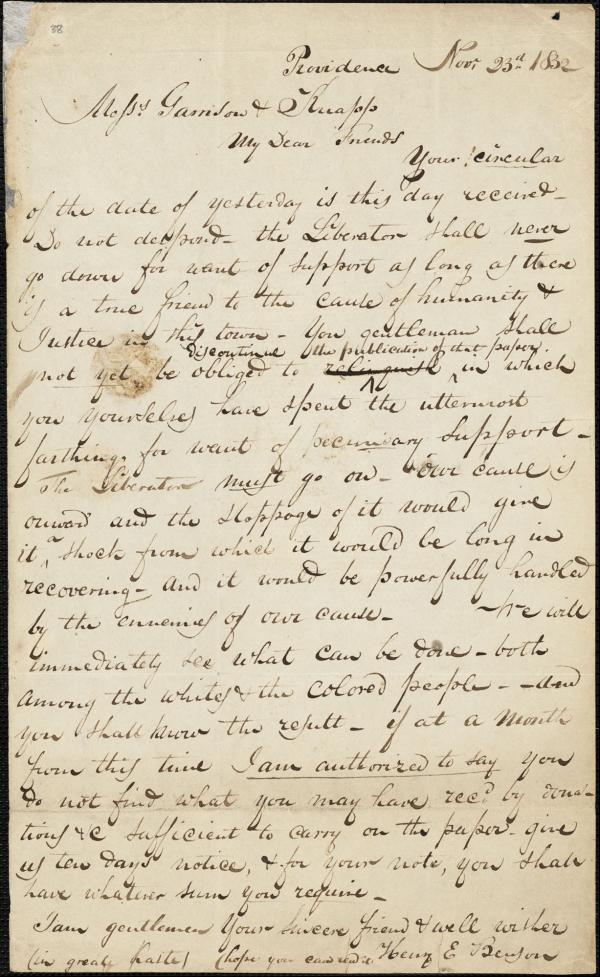 38
Providence Novr 23rd 1832
Messrs Garrison & Knapp
My Dear Friends
Your circular
of the date of yesterday is this day received-
Do not despond- the Liberator shall never
go down for want of support as long as there
is a true friend to the cause of humanity &
Justice in this town - You gentleman shall
discontinue the publication of that paper.
not yet, be obliged to relinquish in which
you yourselves have spent the uttermost
farthing, for want of pecuniary support -
The Liberator must go on- Our cause is
onward and the stoppage of it would give
it a shock from which it would be long in
recovering- and it would be powerfully handled
by the ennemies of our cause- - We will
immediately see what can be done - both
among the whites & the colored people - - and
you shall know the result - if at a Month
from this time I am authorized to say you
do not find what you may have recd by dona-
tions &c sufficient to carry on the paper- give
us ten days notice, & for your note, you shall
have whatever sum you require -
I am gentlemen Your sincere friend & well wisher
(in great haste) (hope you can read it) Henry E Benson